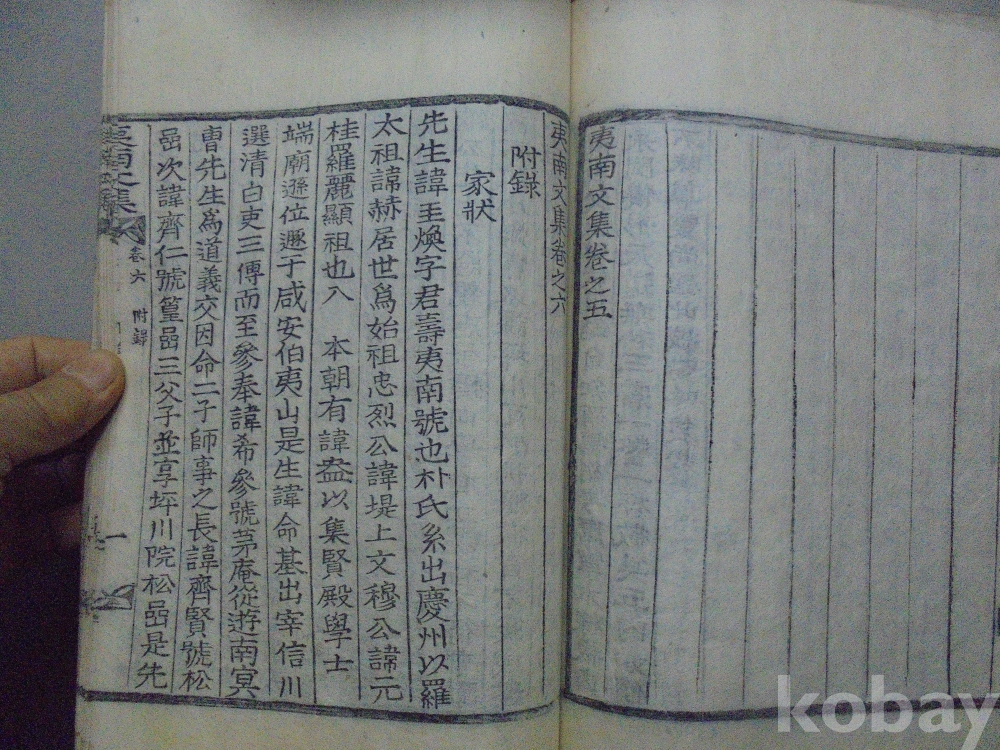 夷南文集卷之五
夷南文集卷之六
附錄
家狀
先生諱圭煥字君壽夷南號也朴氏系出慶州以羅
太祖諱赫居世爲始祖忠烈公諱堤上文穆公諱元
桂羅麗顯祖也入 本朝有諱盎以集賢殿學士
端廟遜位遯于咸安伯夷山是生諱命基出宰信川
選清白吏三傳而至參奉諱希參號茅庵從遊南冥
曺先生爲道義交因命二子師事之長諱齊賢號松
嵒次諱齊仁號篁嵒三父子並享坪川院松嵒是先
夷南文集
卷六 附錄
一
kobay